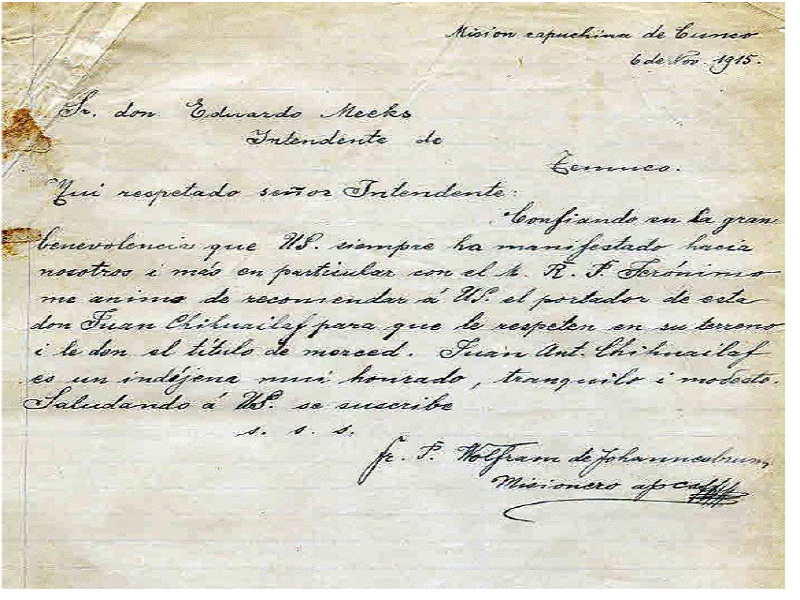 Mision capuchina de Cunco
6 de Nov. 1915.
Sr. don Eduardo Meeks
Intendente de
Temuco.
Mui respetado señor Intendente:
Confiando en la gran
benevolencia que US. siempre ha manifestado hacia
nosotros i más en particular con el M. R. P. Jerónimo
me animo de recomendar á US. el portador de esta
don Juan Chihuailaf para que le respeten en su terreno
i le den el título de merced. Juan Ant. Chihuailaf
es un indíjena mui honrado, tranquilo i modesto.
Saludando á US. se suscribe
s. s. s.
fr. P. Wolfram de Johannesbrunn
Misionero apca